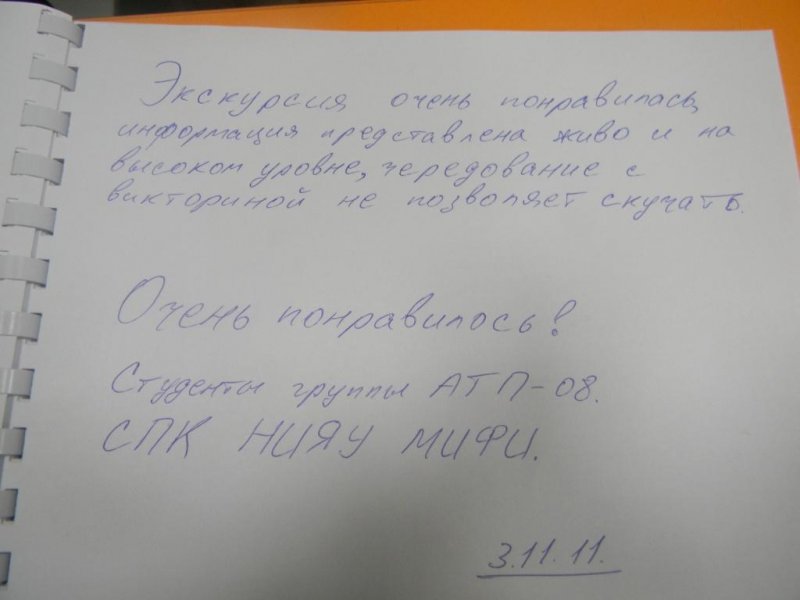 Экскурсия очень понравилась,
информация представлена живо и на
высоком уровне, чередование с
викториной не позволяет скучать.
Очень понравилось!
Студенты группы АТП-08.
СПК НИЯУ МИФИ.
3.11.11.